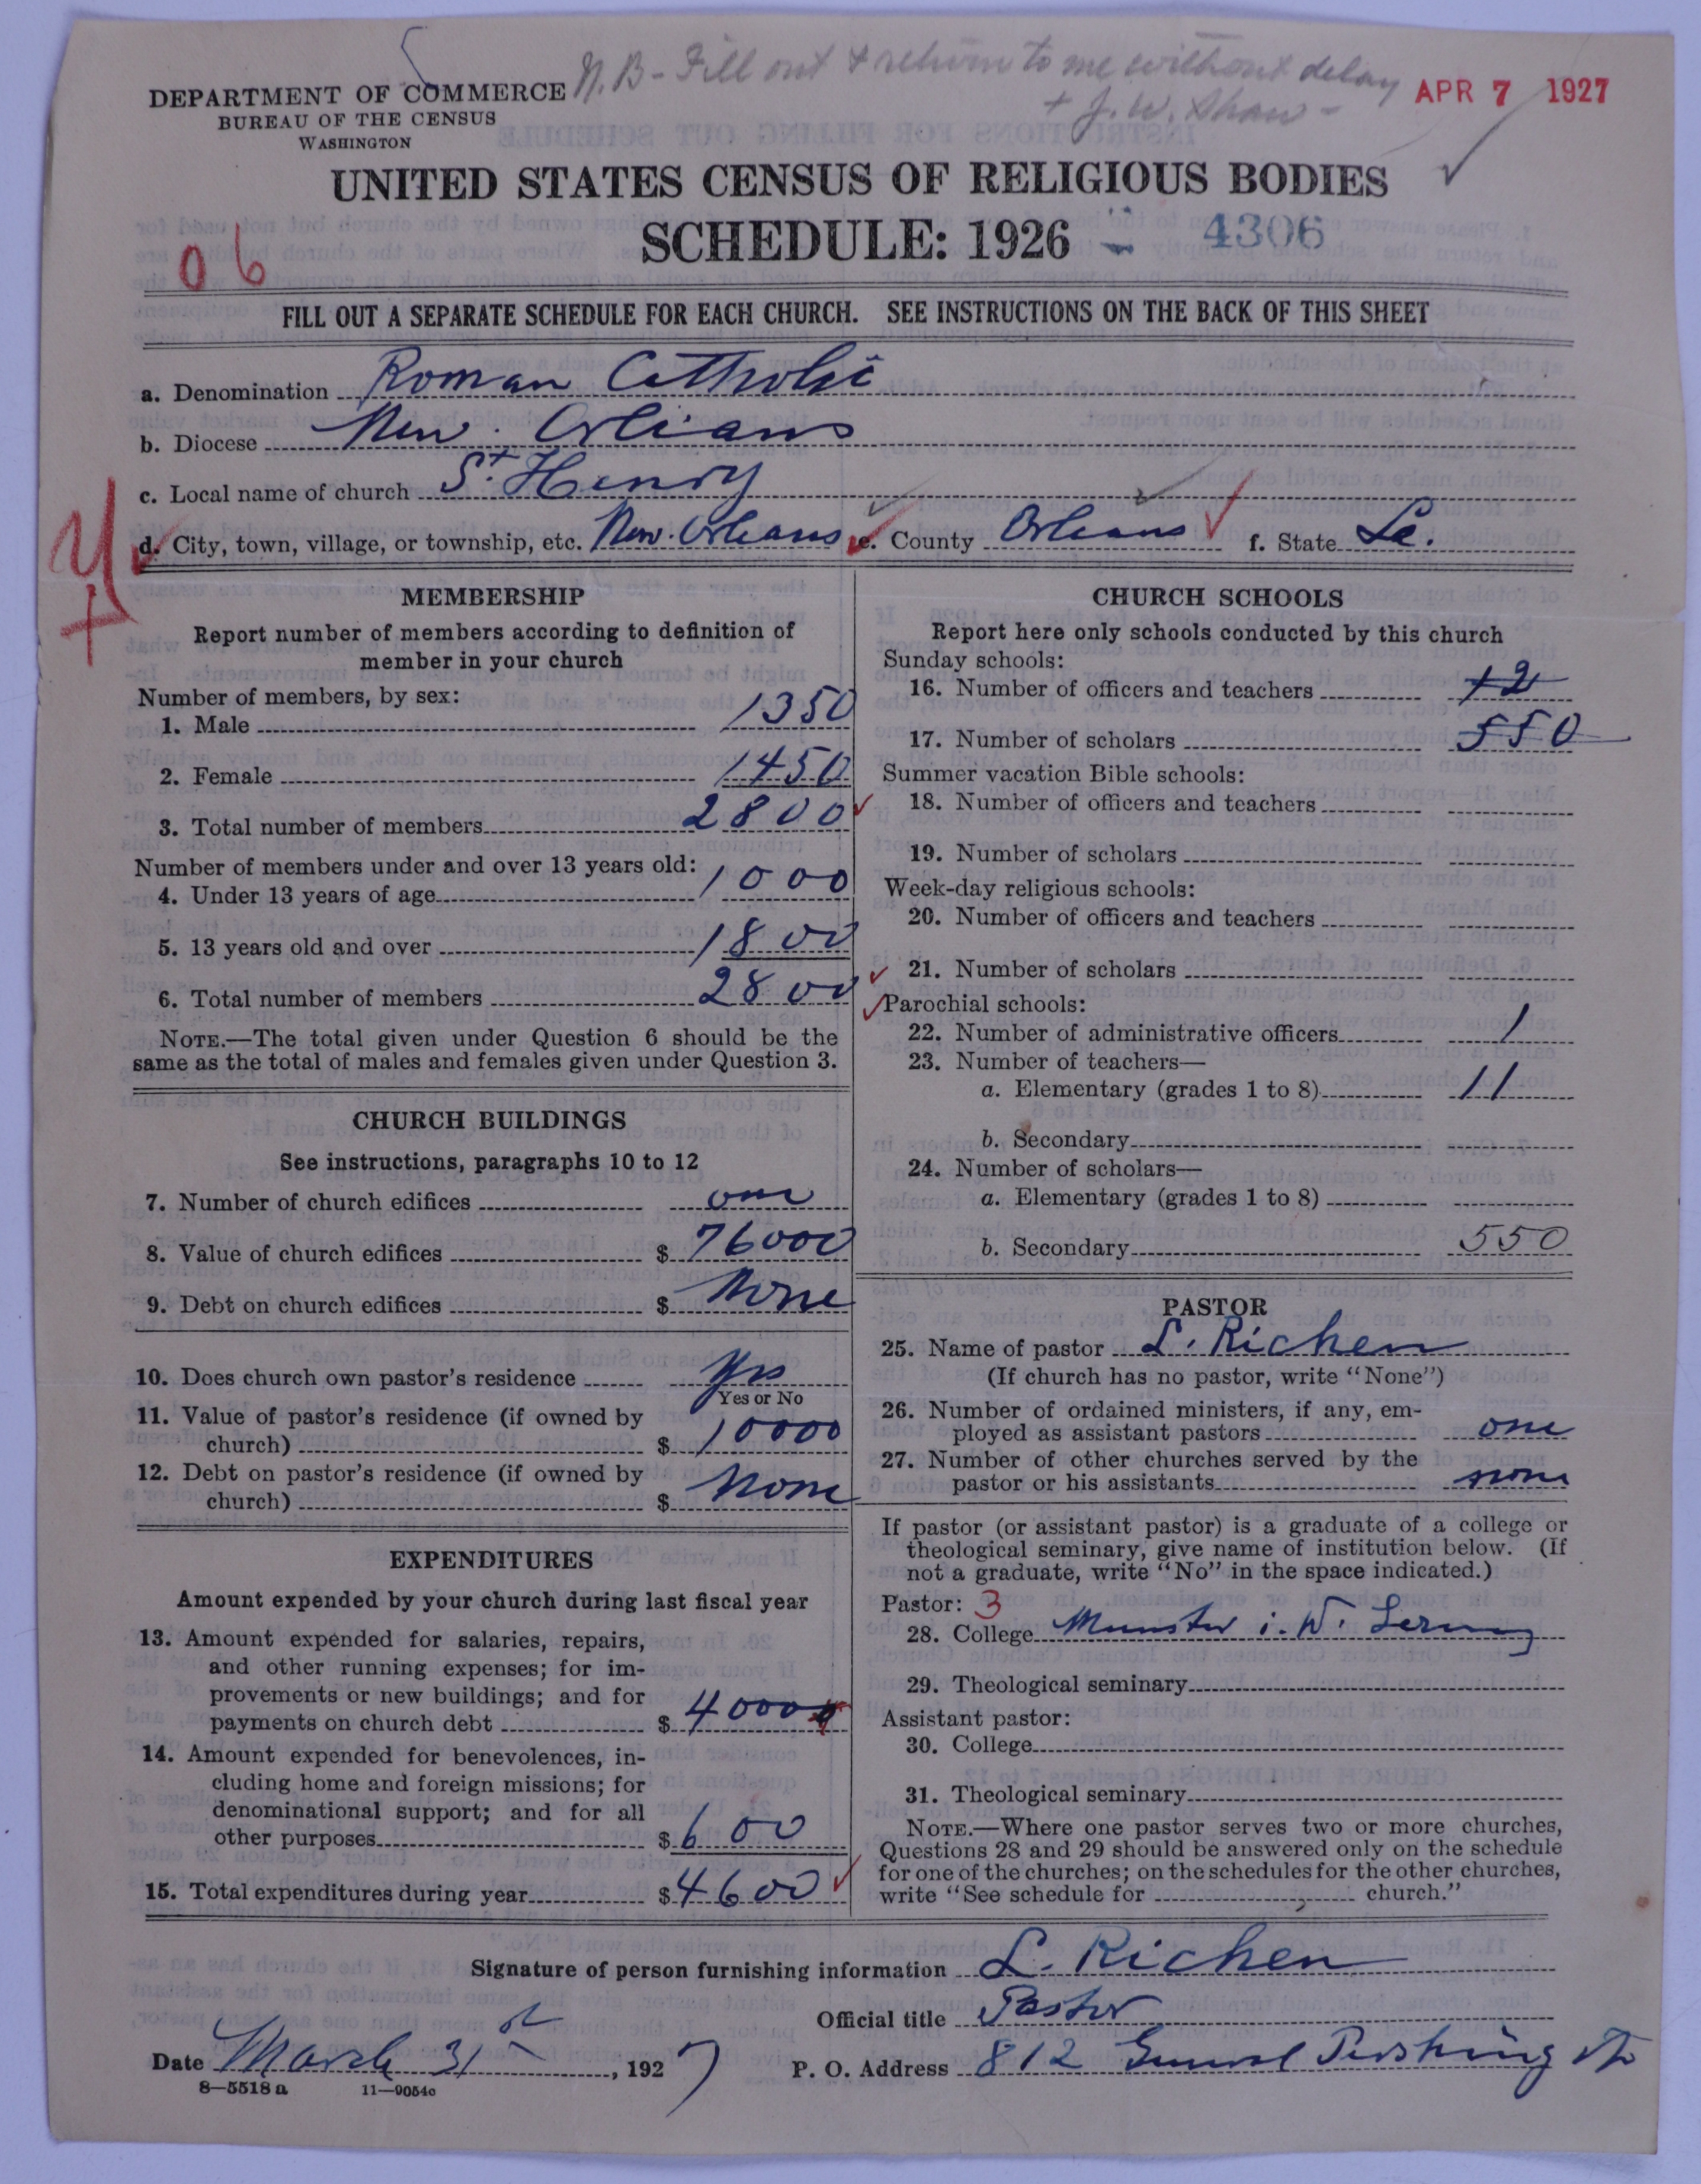 N.B - Fill out & return to me without delay
+ J. W. Shaw -
APR 7 1927
DEPARTMENT OF COMMERCE
BUREAU OF THE CENSUS
WASHINGTON
UNITED STATES CENSUS OF RELIGIOUS BODIES
SCHEDULE: 1926 - 4306
06
FILL OUT A SEPARATE SCHEDULE FOR EACH CHURCH. SEE INSTRUCTIONS ON THE BACK OF THIS SHEET
a. Denomination Roman Catholic
b. Diocese New Orleans
c. Local name of church St. Henry
d. City, town, village, or township, etc. New Orleans e. County Orleans f. State La.
MEMBERSHIP
Report number of members according to definition of
member in your church
Number of members, by sex:
1. Male 1350
2. Female 1450
3. Total number of members 2800
Number of members under and over 13 years old:
4. Under 13 years of age 1000
5. 13 years old and over 1800
6. Total number of members 2800
NOTE.—The total given under Question 6 should be the
same as the total of males and females given under Question 3.
CHURCH BUILDINGS
See instructions, paragraphs 10 to 12
7. Number of church edifices one
8. Value of church edifices $ 76000
9. Debt on church edifices $ None
10. Does church own pastor's residence Yes
Yes or No
11. Value of pastor's residence (if owned by
church) $ 10000
12. Debt on pastor's residence (if owned by
church) $ None
EXPENDITURES
Amount expended by your church during last fiscal year
13. Amount expended for salaries, repairs,
and other running expenses; for im-
provements or new buildings; and for
payments on church debt $ 40000
14. Amount expended for benevolences, in-
cluding home and foreign missions; for
denominational support; and for all
other purposes $ 600
15. Total expenditures during year $ 4600
CHURCH SCHOOLS
Report here only schools conducted by this church
Sunday schools:
16. Number of officers and teachers 12
17. Number of scholars 550
Summer vacation Bible schools:
18. Number of officers and teachers
19. Number of scholars
Week-day religious schools:
20. Number of officers and teachers
21. Number of scholars
Parochial schools:
22. Number of administrative officers 1
23. Number of teachers—
a. Elementary (grades 1 to 8) 11
b. Secondary
24. Number of scholars—
a. Elementary (grades 1 to 8)
b. Secondary 550
PASTOR
25. Name of pastor L. Richen
(If church has no pastor, write "None")
26. Number of ordained ministers, if any, em-
ployed as assistant pastors one
27. Number of other churches served by the
pastor or his assistants none
If pastor (or assistant pastor) is a graduate of a college or
theological seminary, give name of institution below. (If
not a graduate, write "No" in the space indicated.)
Pastor: 3
28. College Munster i. W.
29. Theological seminary
Assistant pastor:
30. College
31. Theological seminary
NOTE.—Where one pastor serves two or more churches,
Questions 28 and 29 should be answered only on the schedule
for one of the churches; on the schedules for the other churches,
write "See schedule for church."
Signature of person furnishing information L. Richen
Official title Pastor
Date March 31st, 1927 P. O. Address 812 General Pershing St
8—5518 a 11—9054c